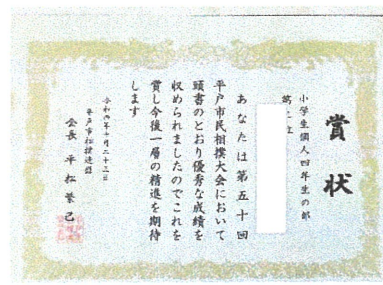 賞状
小学生個人四年生の部
第二位
あなたは第五十回
平戸市民相撲大会において
頭書のとおり優秀な成績を
収められましたのでこれを
賞し今後一層の精進を期待
します
平戸市相撲連盟
会長 平松繁己